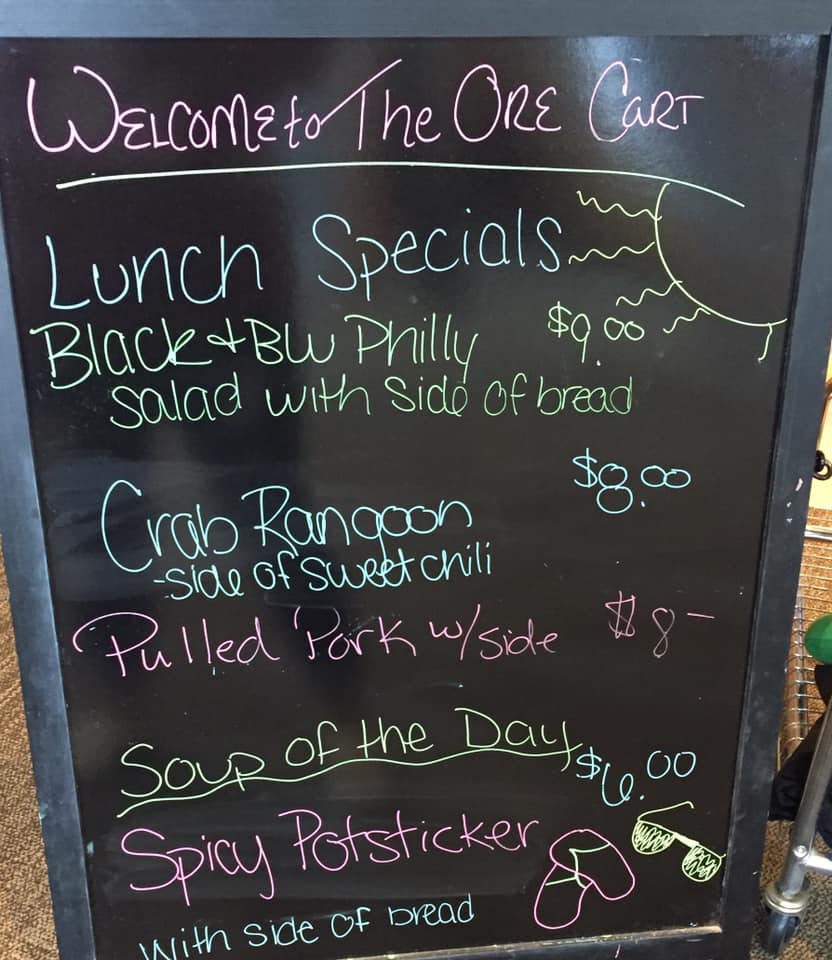 WELCOME to The ORE CART
Lunch Specials
Black + BLU Philly $9.00
salad with side of bread
$8.00
Crab Rangoon
-side of sweet chili
Pulled Pork w/side $8-
Soup of the Day $6.00
Spicy Potsticker
with side of bread